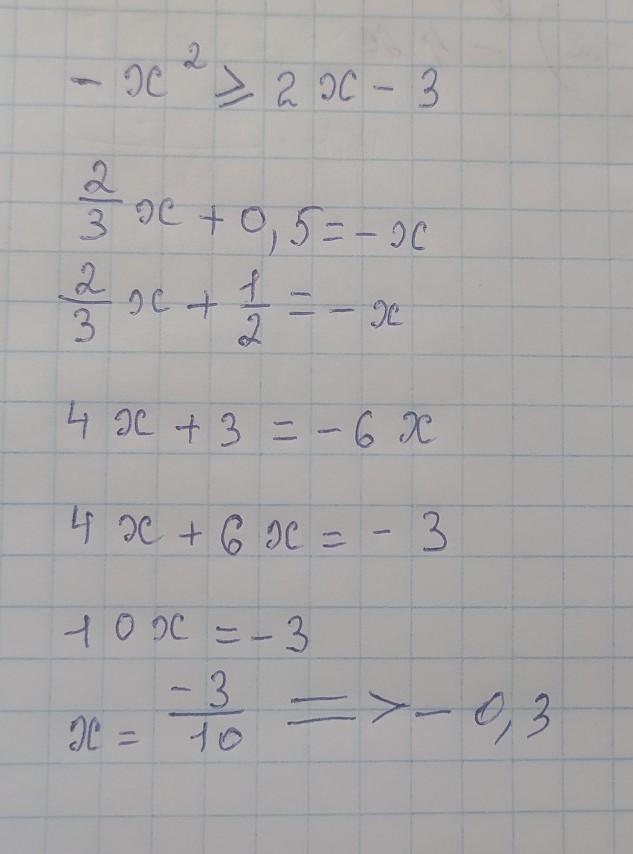 -x² ⩾ 2x - 3
2/3 x + 0,5 = -x
2/3 x + 1/2 = -x
4x + 3 = -6x
4x + 6x = -3
10x = -3
x = -3/10 => -0,3